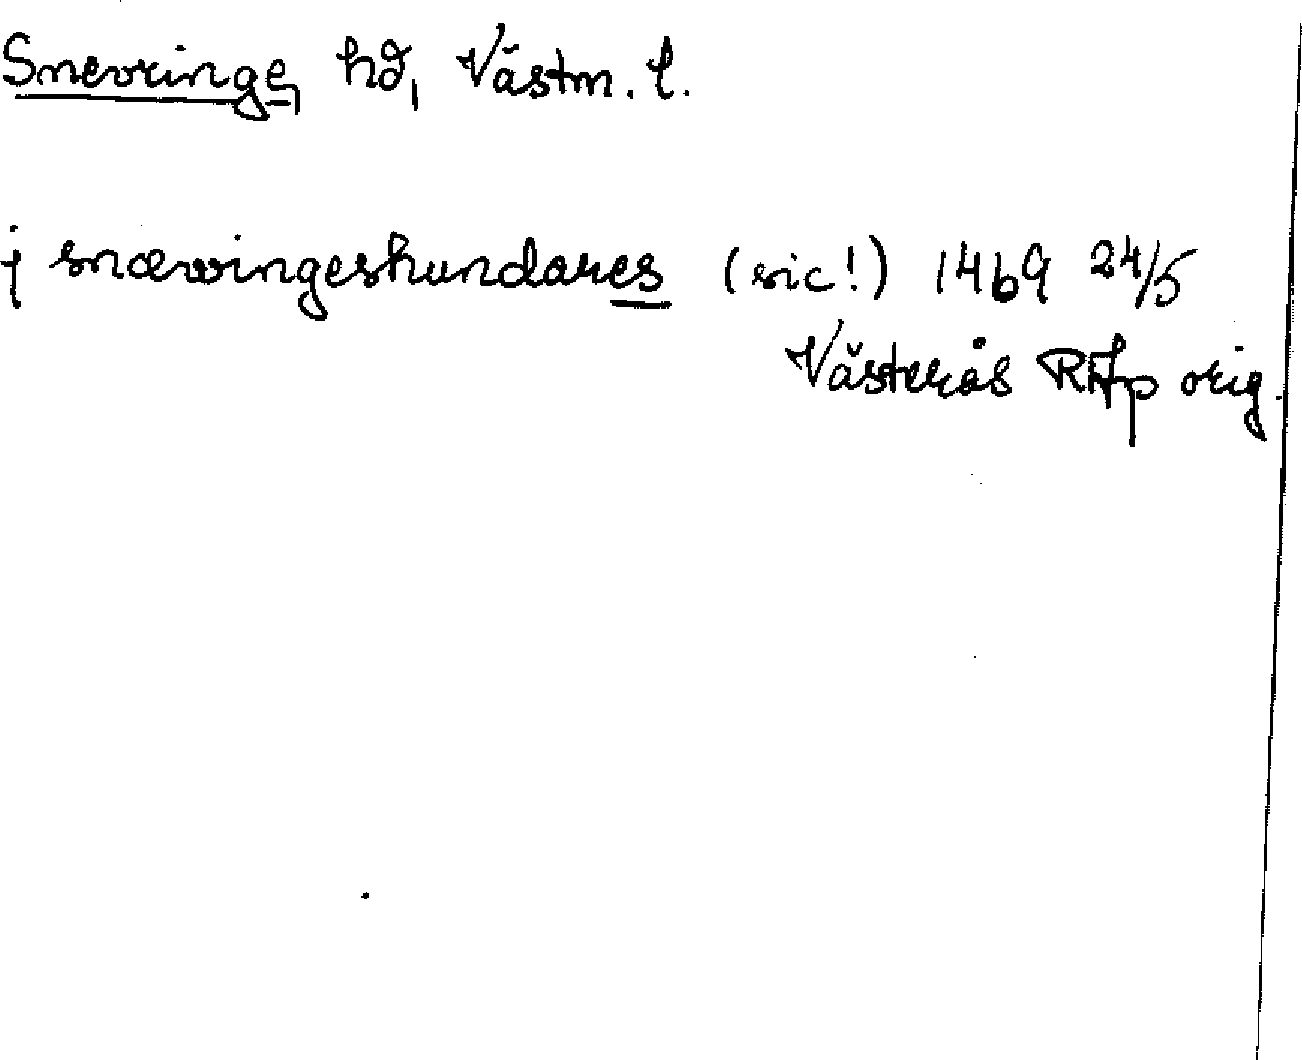 Snevringe, hd, Västm. l.
j snæwingeshundares (sic!) 1469 24/5
Västerås RAp orig.